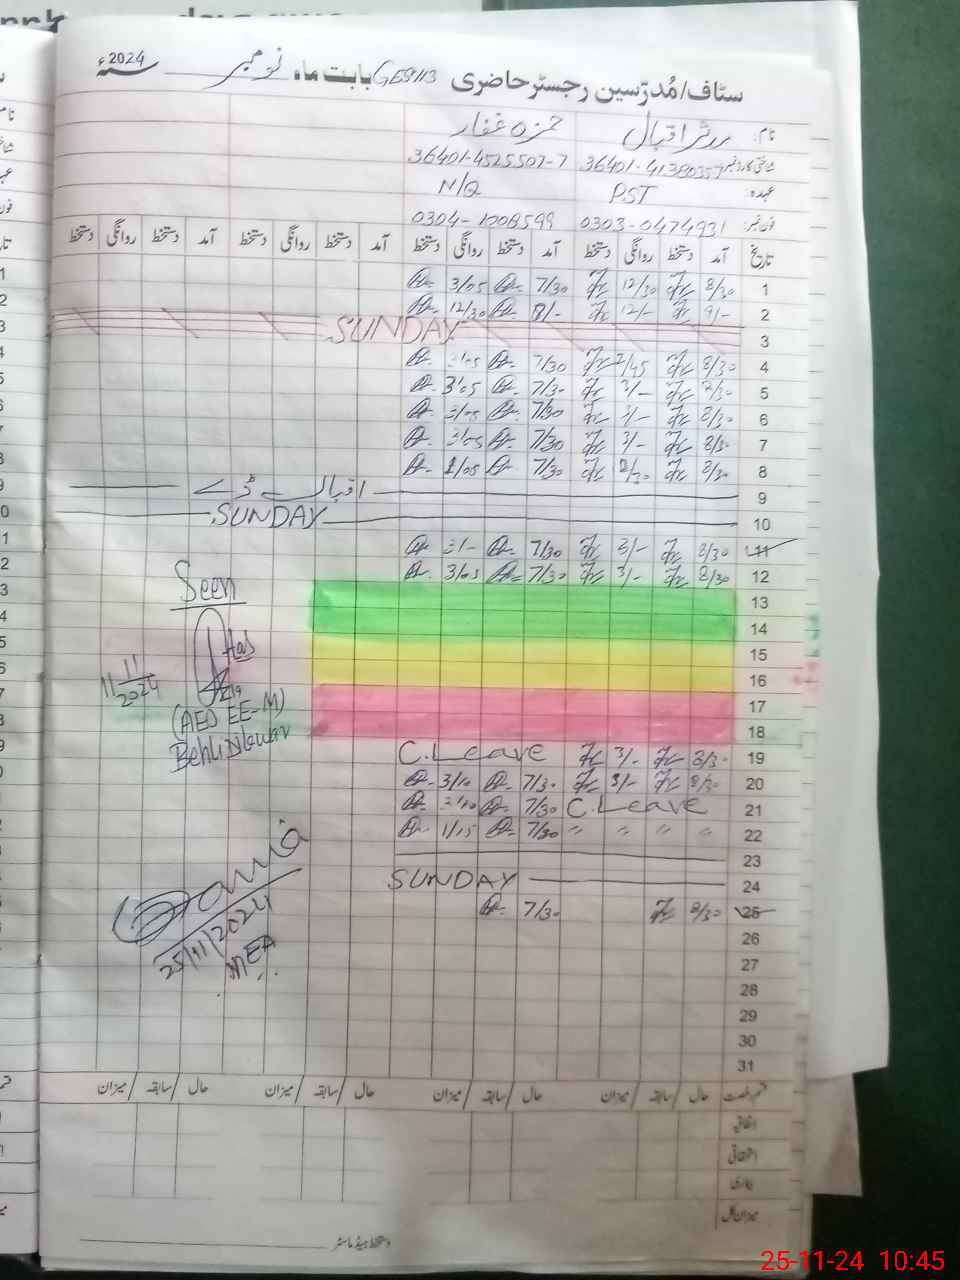 سٹاف/مُدرّسین رجسٹر حاضری GES 113 بابت ماہ نومبر سنہ 2024ء
نام: اقبال حمزہ غفار
36401-4525507-7
عہدہ: PST N/Q
فون نمبر: 0303-0474931 0304-1208599
تاریخ آمد دستخط روانگی دستخط آمد دستخط روانگی دستخط آمد دستخط روانگی دستخط آمد دستخط روانگی دستخط
1 8/30 12/30 7/30 3/05
2 9/- 12/- 8/- 12/30
3 SUNDAY
4 8/30 2/45 7/30 3/05
5 8/30 3/- 7/30 3/05
6 8/30 3/- 7/30 3/05
7 8/30 3/- 7/30 3/05
8 8/30 2/30 7/30 1/05
9 اقبال ڈے
10 SUNDAY
11 8/30 3/- 7/30 3/-
12 8/30 3/- 7/30 3/05
13
14
15
16
17
18
19 8/30 3/- C.Leave
20 8/30 3/- 7/30 3/10
21 C.Leave 7/30 3/10
22 " " " " 7/30 1/15
23
24 SUNDAY
25 8/30 7/30
26
27
28
29
30
31
Seen
11/11/2024
(AEO EE-M)
25/11/2024
MEA
قسم رخصت حال / سابقہ / میزان حال / سابقہ / میزان حال / سابقہ / میزان حال / سابقہ / میزان
اتفاقیہ
استحقاقی
بیماری
میزان کل
دستخط ہیڈ ماسٹر
25-11-24 10:45